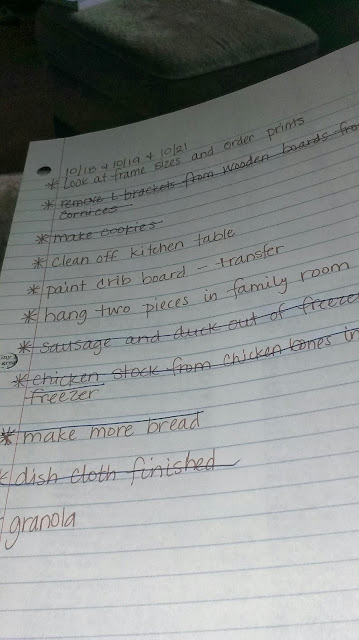 10/18 + 10/19 + 10/21
* Look at frame sizes and order prints
* remove L brackets from wooden boards fro
cornices
* make cookies
* clean off kitchen table
* paint crib board - transfer
* hang two pieces in family room
* sausage and duck out of freeze
* chicken stock from chicken bones in
freezer
* make more bread
* dish cloth finished
granola